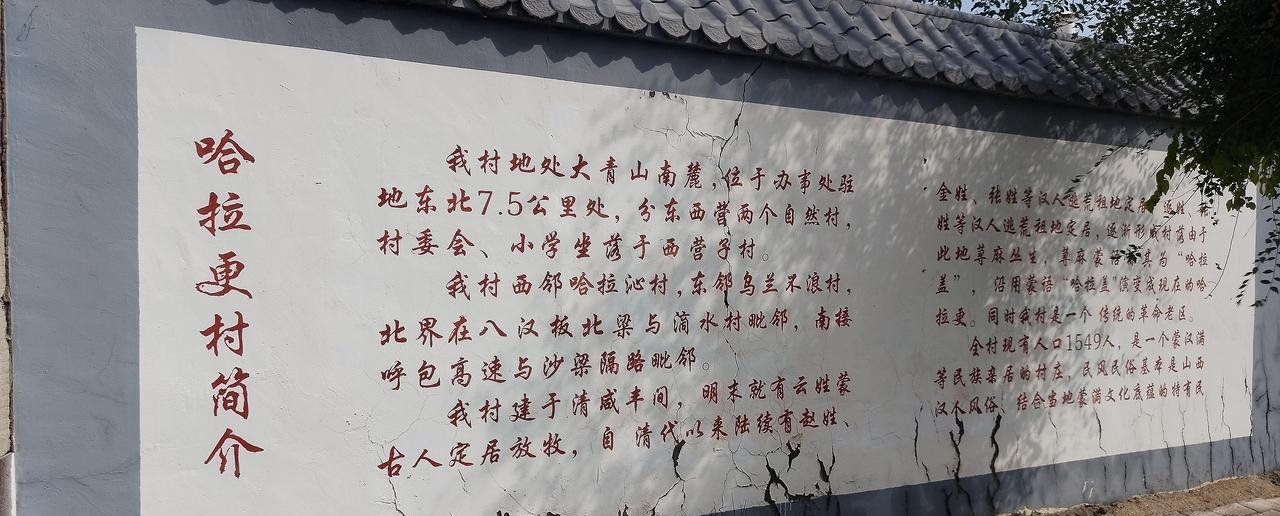 哈拉更村简介
我村地处大青山南麓，位于办事处驻
地东北7.5公里处，分东西营两个自然村，
村委会、小学坐落于西营子村。
我村西邻哈拉沁村，东邻乌兰不浪村，
北界在八汉板北梁与滴水村毗邻，南接
呼包高速与沙梁隔路毗邻。
我村建于清咸丰间，明末就有云姓蒙
古人定居放牧，自清代以来陆续有赵姓、
金姓、张姓等汉人逃荒租地定居，逐姓、
姓等汉人逃荒租地定居，逐渐形成村落由于
此地荨麻丛生，荨麻蒙语称其为“哈拉
盖”，沿用蒙语“哈拉盖”演变成现在的哈
拉更。同时我村是一个传统的革命老区。
全村现有人口1549人，是一个蒙汉满
等民族杂居的村庄，民风民俗基本是山西
汉人风俗，结合当地蒙满文化底蕴的特有民